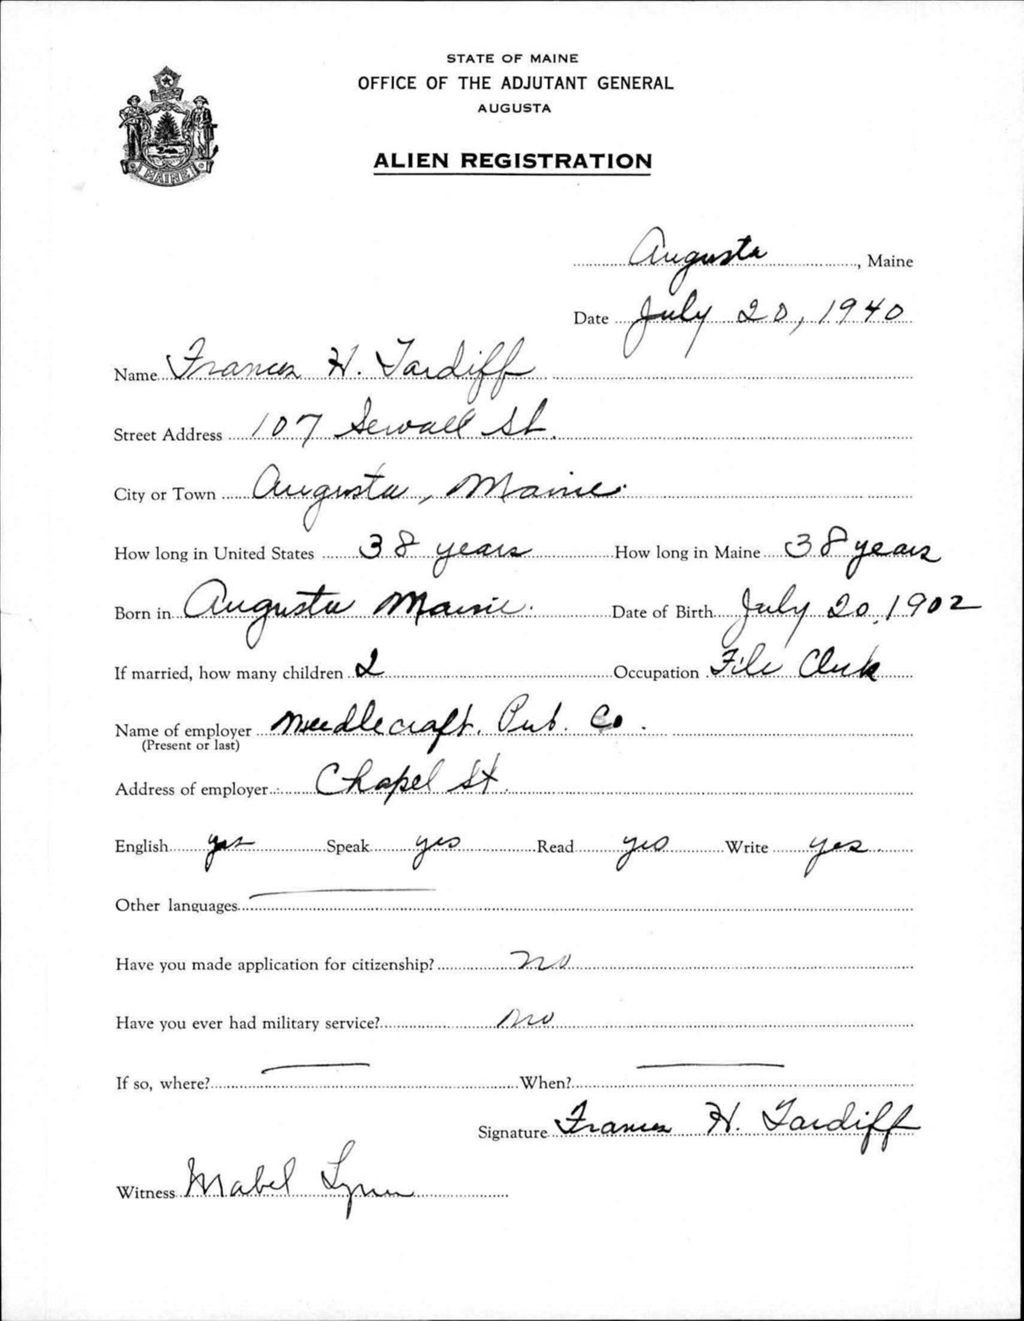 STATE OF MAINE
OFFICE OF THE ADJUTANT GENERAL
AUGUSTA
ALIEN REGISTRATION
MAINE
Augusta, Maine
Date July 20, 1940
Name Frances H. Tardiff
Street Address 107 Sewall St.
City or Town Augusta, Maine.
How long in United States 38 years How long in Maine 38 years
Born in Augusta Maine. Date of Birth July 20, 1902
If married, how many children 2 Occupation File Clerk
Name of employer Needlecraft. Pub. Co.
(Present or last)
Address of employer Chapel St.
English yes Speak yes Read yes Write yes.
Other languages
Have you made application for citizenship? no
Have you ever had military service? no
If so, where? When?
Signature Frances H. Tardiff
Witness Mabel Lynn